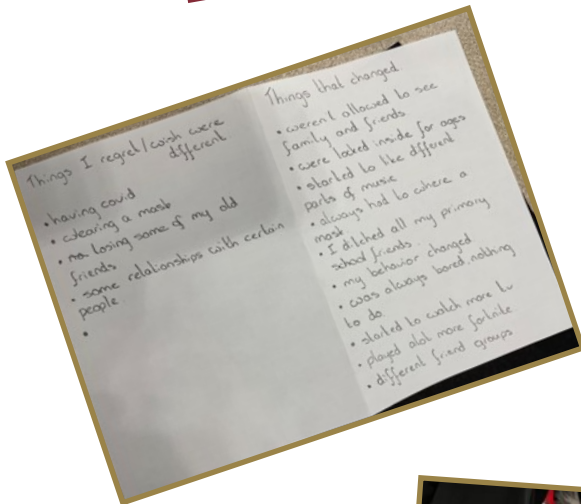 Things I regret/wish were
different
• having covid
• wearing a mask
• losing some of my old
friends
• some relationships with certain
people.
•
Things that changed
• weren't allowed to see
family and friends
• were locked inside for ages
• started to like different
parts of music
• always had to where a
mask
• I ditched all my primary
school friends.
• my behavior changed
• was always bored, nothing
to do.
• started to watch more tv
• played alot more fortnite
• different friend groups